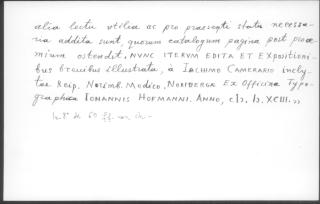 alia lectu utilia ac pro praesenti statu necessa-
ria addita sunt, quorum catalogum pagina post prooe-
mium ostendit, NUNC ITERUM EDITA ET EXpositioni-
bus brevibus illustrata, à IOACHIMO CAMERARIO incly-
tae Reip. Norimb. Medico, NORIBERGÆ Ex Officina Typo-
graphica IOHANNIS HOFMANNI. ANNO, cIɔ. Iɔ. XCIII. »
In 8° de 60 ff